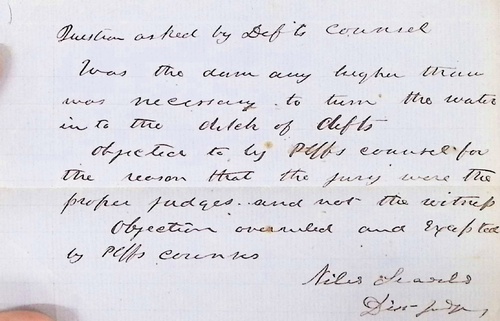 Question asked by Defts counsel
Was the dam any higher than
was necessary to turn the water
in to the ditch of defts
Objected to by Plffs counsel for
the reason that the jury were the
proper judges and not the witness
Objection overruled and Excepted
by Plffs counse
Niles Searls
Dist Judge